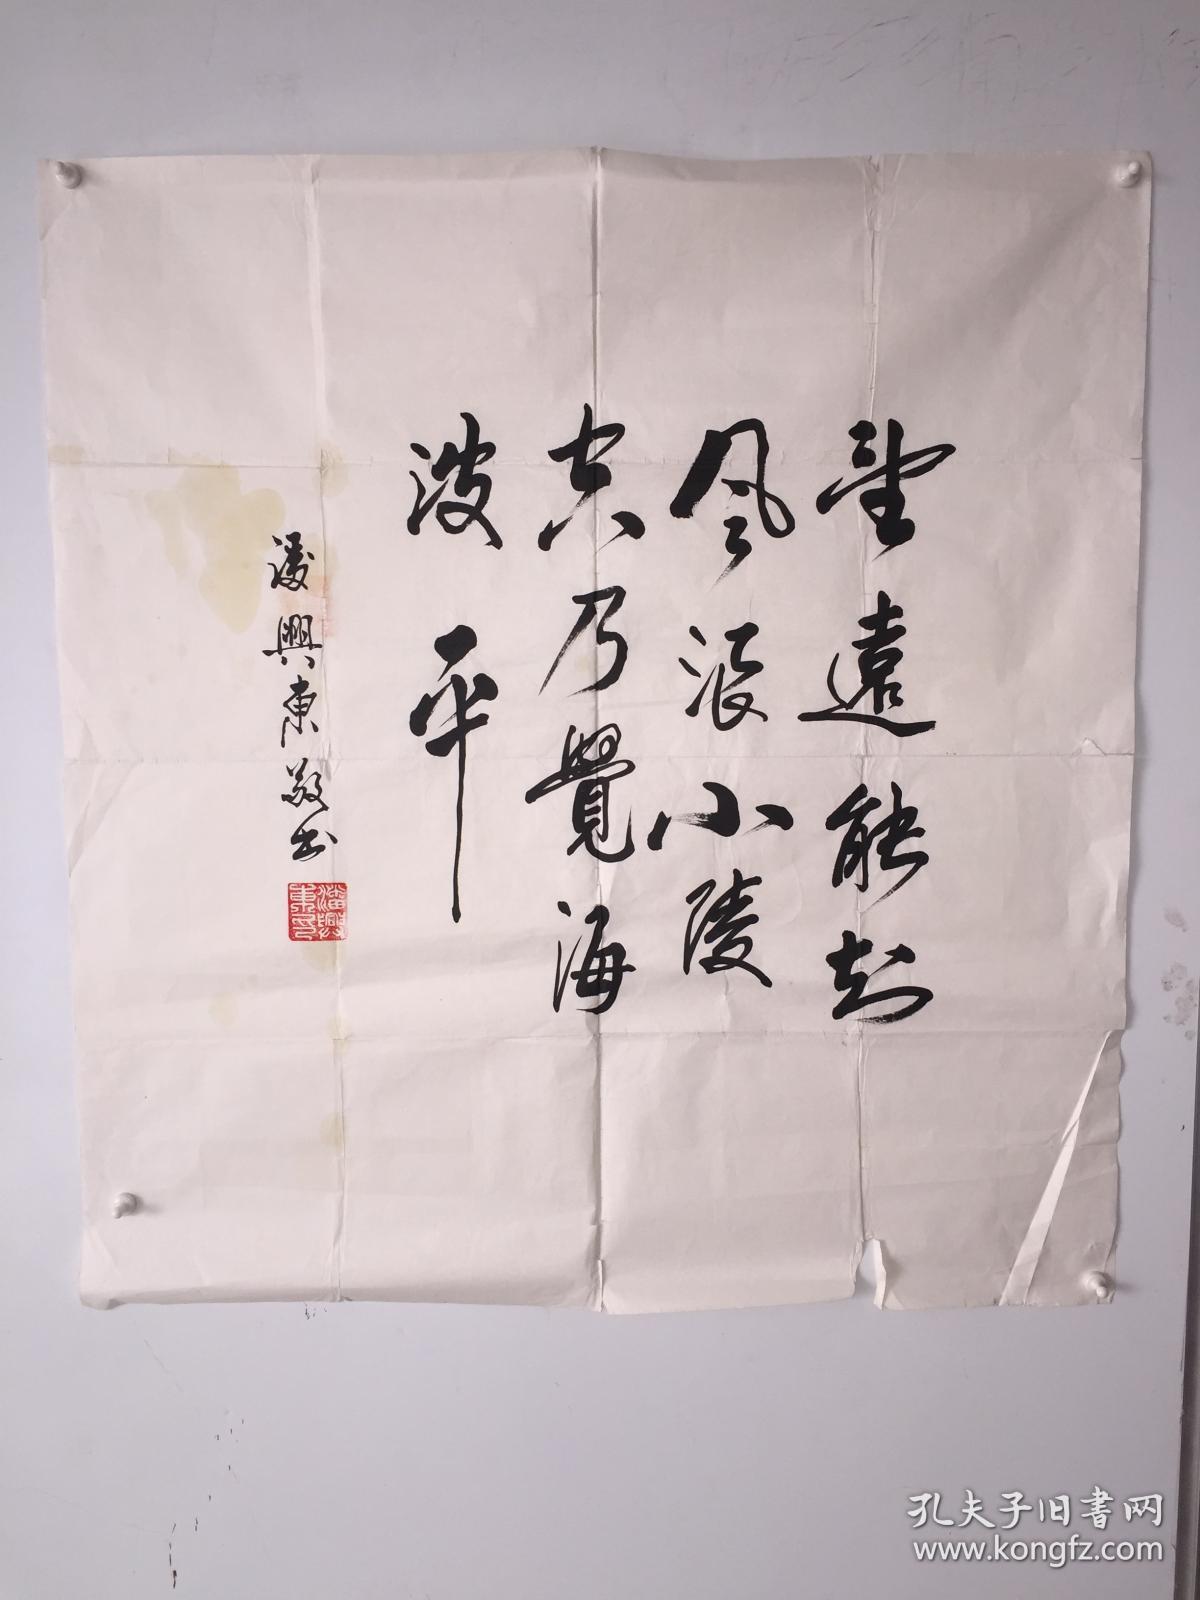 望遠能知
風浪小陵
空乃覺海
波平
潘興東敬书
潘興東印
孔夫子旧書网
www.kongfz.com